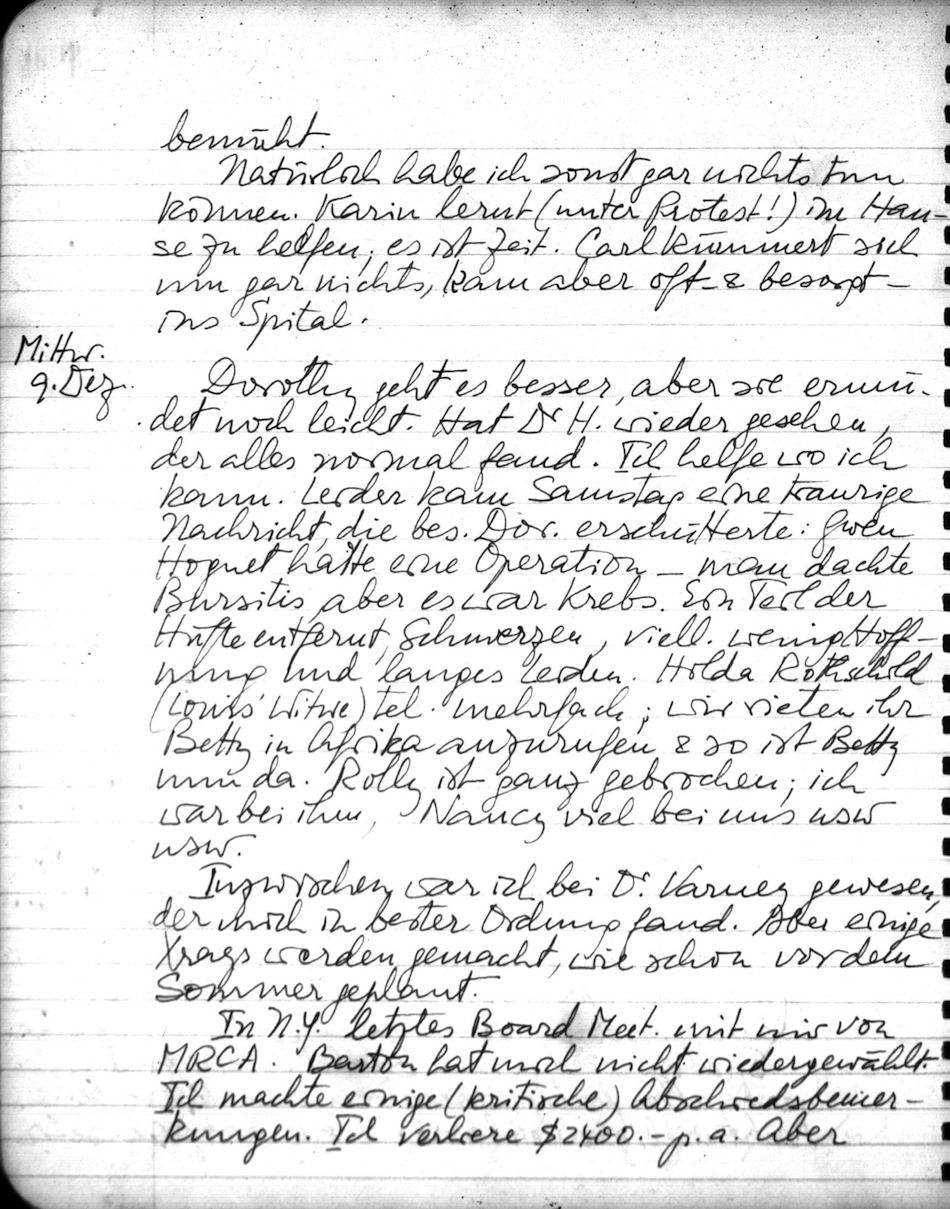 bemüht.
Natürlich habe ich sonst gar nichts tun
können. Karin lernt (unter Protest!) im Hau-
se zu helfen; es ist Zeit. Carl kümmert sich
um gar nichts, kam aber oft - & besorgt -
ins Spital.
Mittw.
9. Dez.
Dorothy geht es besser, aber sie ermü-
det noch leicht. Hat Dr H. wieder gesehen,
der alles normal fand. Ich helfe wo ich
kann. Leider kam Samstag eine traurige
Nachricht, die bes. Dor. erschütterte: Gwen
Hoguet hatte eine Operation - man dachte
Bursitis, aber es war Krebs. Ein Teil der
Hüfte entfernt, Schmerzen, viell. wenig Hoff-
nung und langes Leiden. Hilda Rothschild
(Louis' Witwe) tel. mehrfach; wir rieten ihr
Betty in Afrika anzurufen & so ist Betty
nun da. Rolly ist ganz gebrochen; ich
war bei ihm, Nancy viel bei uns usw
usw.
Inzwischen war ich bei Dr. Varney gewesen,
der mich in bester Ordnung fand. Aber einige
Xrays werden gemacht, wie schon vor dem
Sommer geplant.
In N.Y. letztes Board Meet. mit mir von
MRCA. Barton hat mich nicht wiedergewählt.
Ich machte einige (kritische) Abschiedsbemer-
kungen. Ich verliere $2400.- p.a. Aber